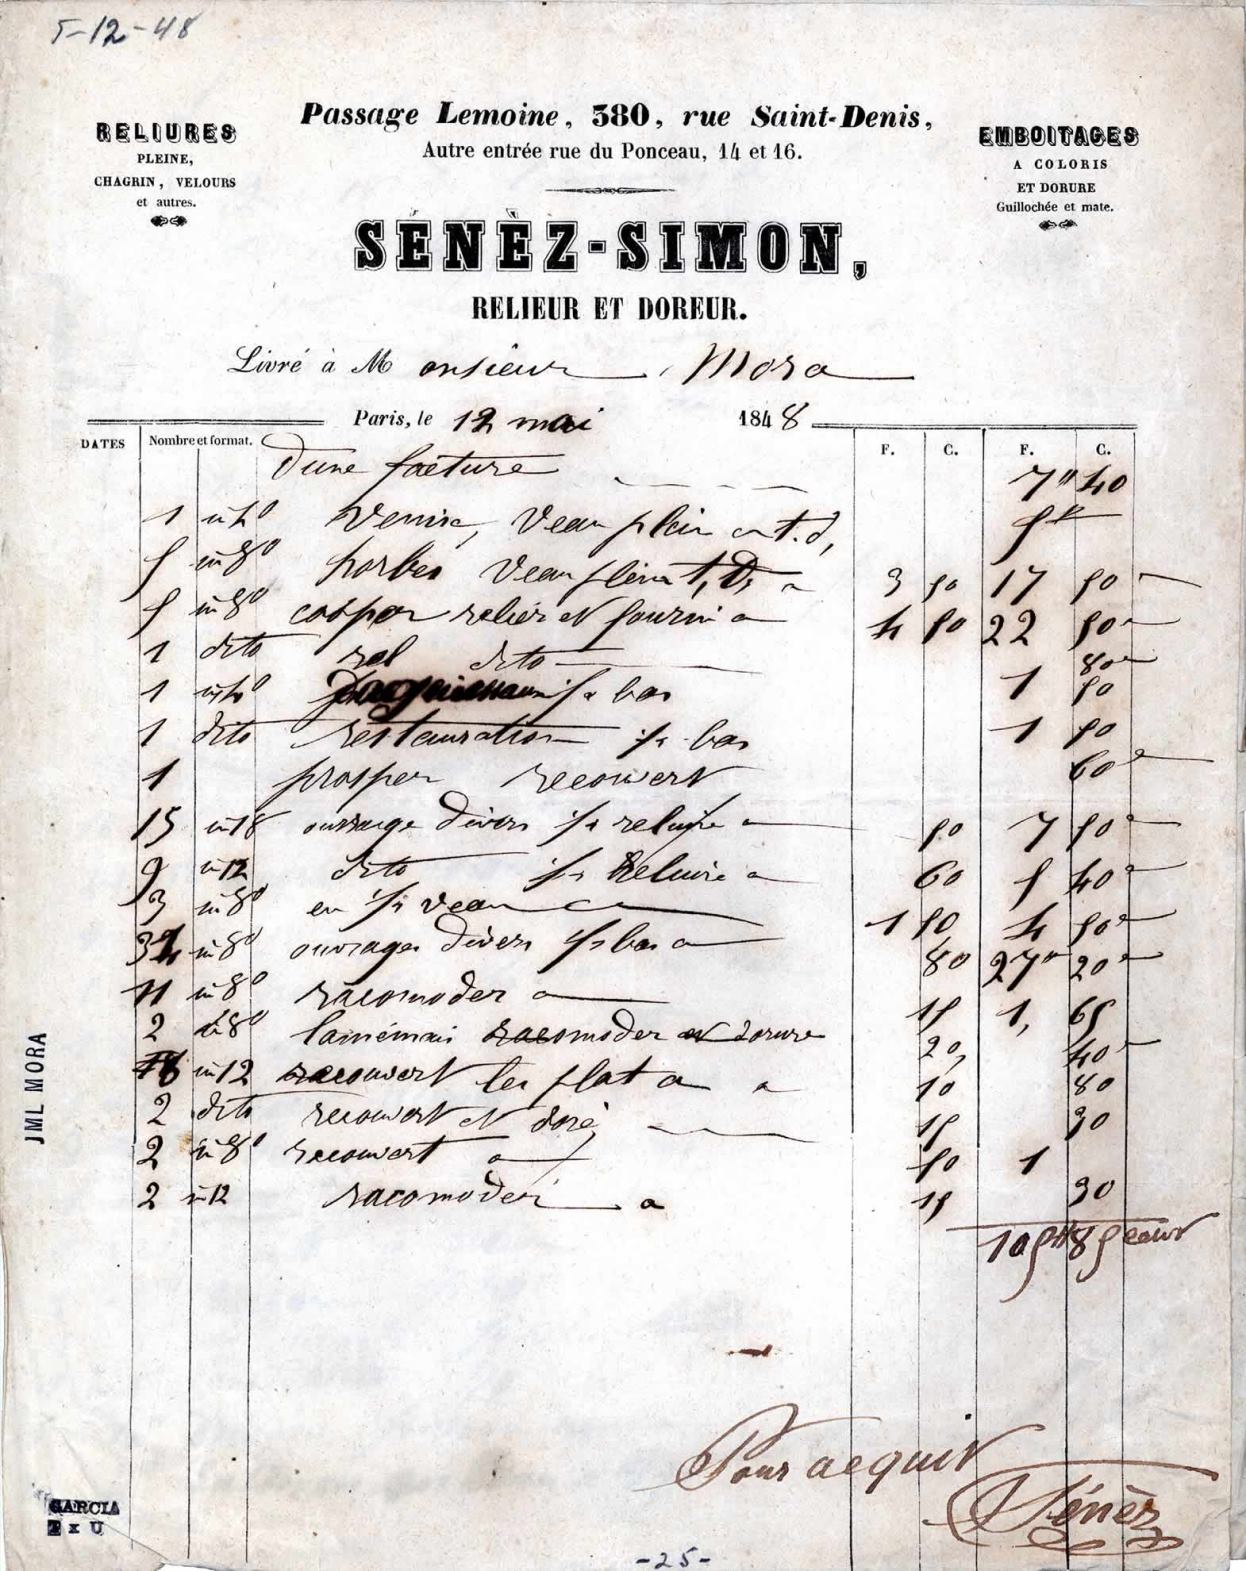 5-12-48
Passage Lemoine, 380, rue Saint-Denis,
Autre entrée rue du Ponceau, 14 et 16.
RELIURES
PLEINE,
CHAGRIN, VELOURS
et autres.
EMBOITAGES
A COLORIS
ET DORURE
Guillochée et mate.
SÉNÈZ-SIMON,
RELIEUR ET DOREUR.
Livré à Monsieur Mora
Paris, le 12 mai 1848
DATES Nombre et format. F. C. F. C.
d'une facture 7" 40
1 in 4º Venise, Veau plein a t. d, 5"
5 in 8º forbes Veau plein t, D, a 3 50 17 50
5 in 8º relier et fourni a 4 50 22 50
1 dito rel dito 80
1 in 4º ½ bas 1 50
1 dito restauration ½ bas 1 50
1 prosper recouvert 60
15 in 18 ouvrage divers ½ reluire a 50 7 50
9 in 12 dito ½ Reluire a 60 5 40
3 in 8º en ½ veau a 1 50 4 50
34 in 8º ouvrages divers ½ bas a 80 27" 20
11 in 8º racomoder a 15 1, 65
2 in 8º racomoder et dorure 20, 40
in 12 racouvert les plat a a 10 80
2 dito recouvert et doré, 15 30
2 in 8º recouvert a 50 1
2 in 12 racomoder a 15 30
105" 85
Pour acquit
Sénèz
JML MORA
GARCIA
T x U
-25-